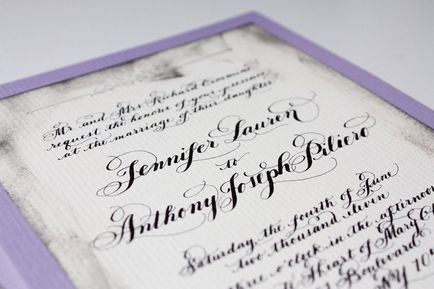 Mr and Mrs Richard
request the honour of your presence
at the marriage of their daughter
Jennifer Lauren
to
Anthony Joseph Piliero
Saturday, the fourth of June
two thousand eleven
three o'clock in the afternoon
Heart of Mary
Boulevard
NY 10